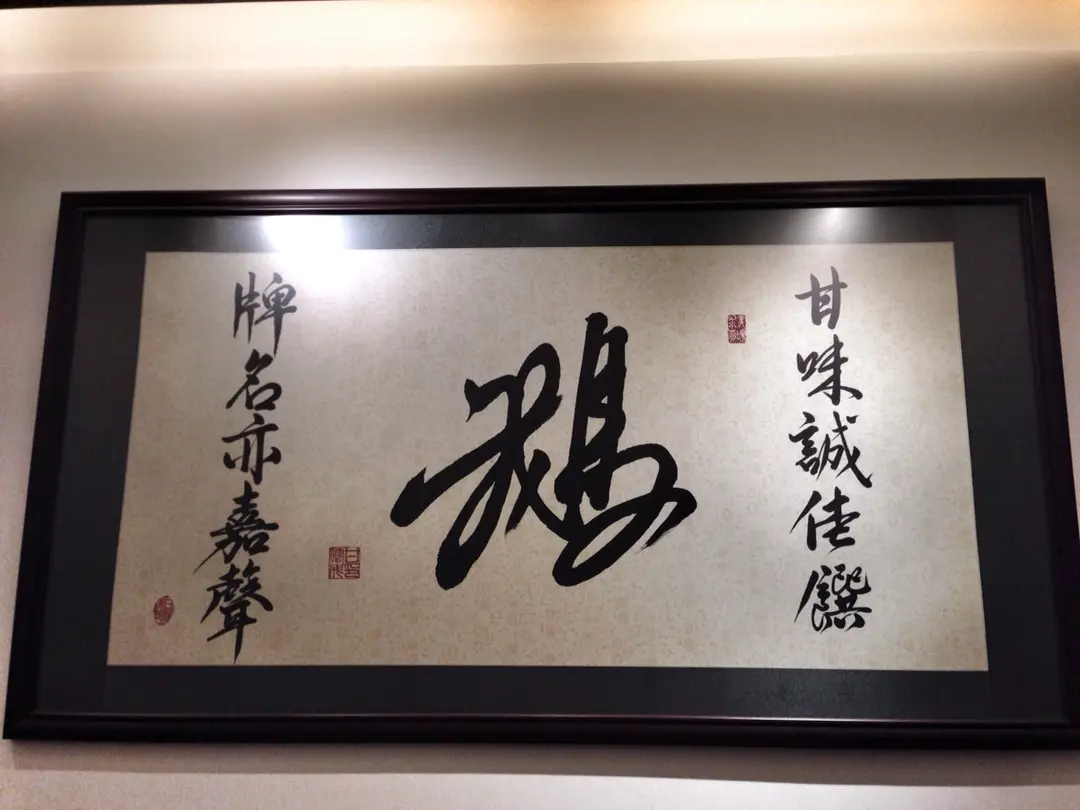 甘味誠佳饌
鵝
牌名亦嘉聲